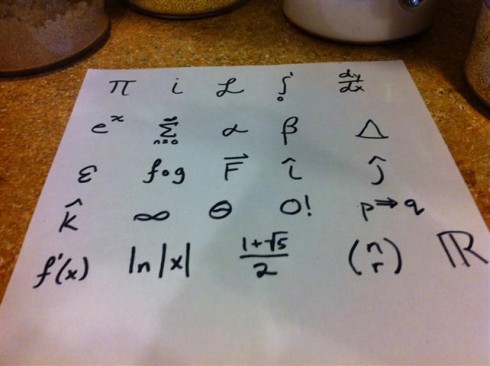 π i ℒ ∫₀¹ dy/dx
eˣ ∑ₙ₌₀^∞ α β Δ
ε f∘g F⃗ î ĵ
k̂ ∞ Θ 0! p⇒q
f'(x) ln|x| (1+√5)/2 (n r) ℝ